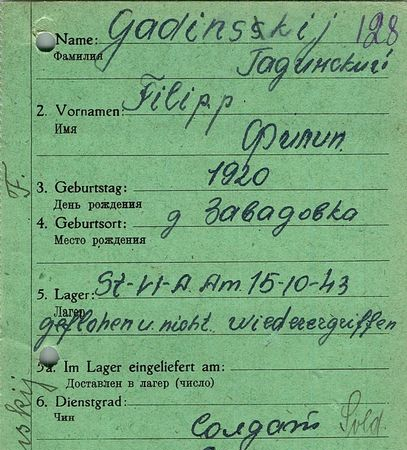 Name: Gadinsskij 128
Фамилия Гадинский
2. Vornamen: Filipp
Имя Филип.
3. Geburtstag: 1920
День рождения
4. Geburtsort: д Завадовка
Место рождения
5. Lager: St-VI-A. Am 15-10-43
Лагерь
geflohen u. nicht wiederergriffen
5a. Im Lager eingeliefert am:
Доставлен в лагерь (число)
6. Dienstgrad:
Чин
Солдат Sold.
F.
skij